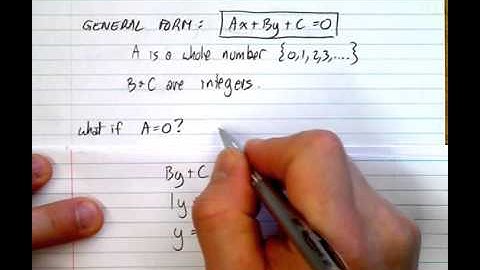 GENERAL FORM: Ax+By+C=0
A is a whole number {0,1,2,3,....}
B+C are integers.
what if A=0?
By+C
1y
y =